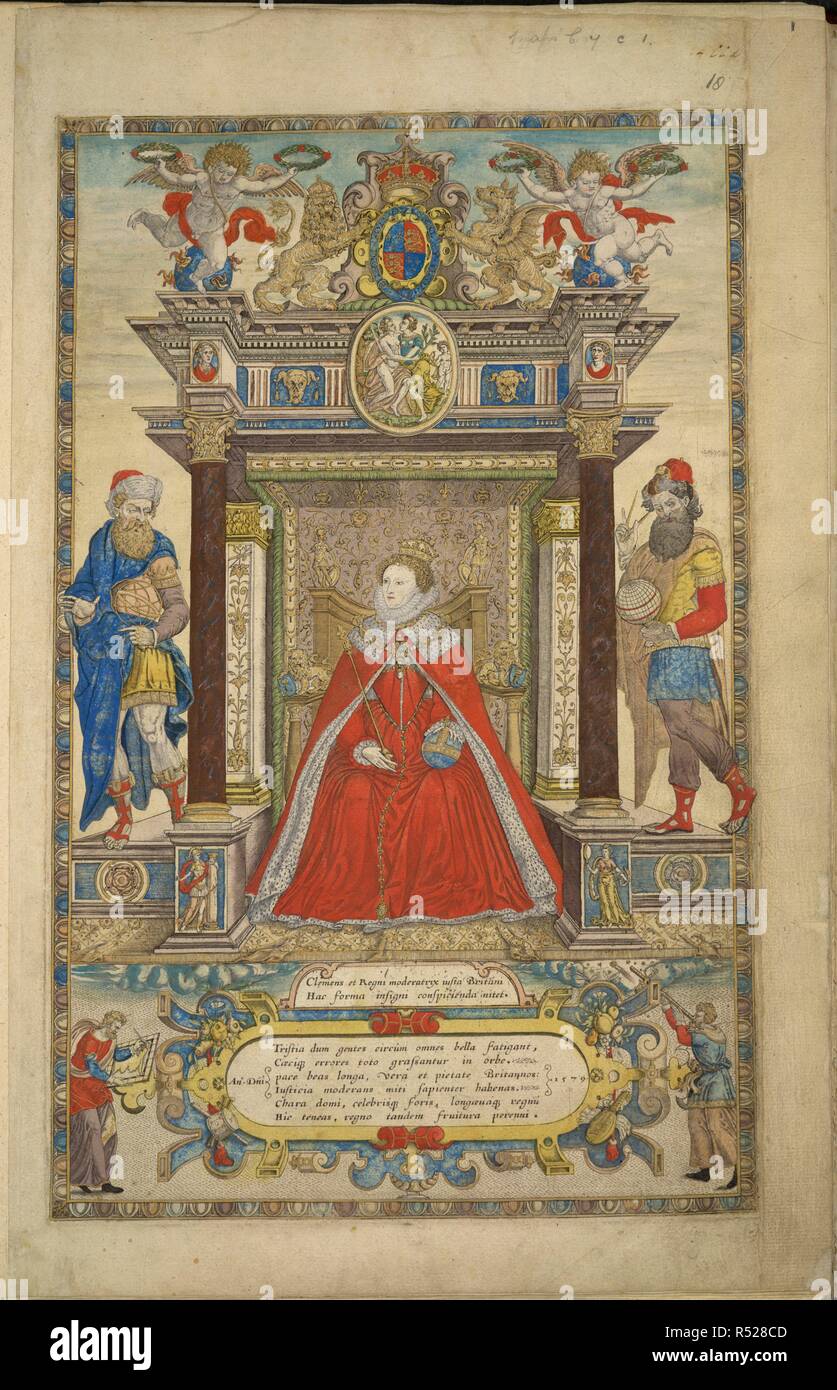 1
18
Clemens et Regni moderatrix iusta Britāni
Hac forma insigni conspicienda nitet.
Tristia dum gentes circùm omnes bella fatigant,
Cæciq; errores toto grassantur in orbe.
pace beas longa, vera et pietate Britannos:
Iusticia moderans miti sapienter habenas.
Chara domi, celebrisq; foris, longævaq; regnū
Hic teneas, regno tandem fruitura perenni.
An. Dn̄i
1579
alamy
alamy
Image ID: R528CD
www.alamy.com